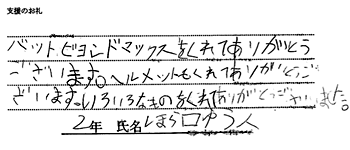 支援のお礼
バットビヨンドマックスをくれてありがとう
ございます。ヘルメットもくれてありがとうご
ざいます。いろいろなものをくれてありがとうございました。
2年 氏名 しまら口ゆう人